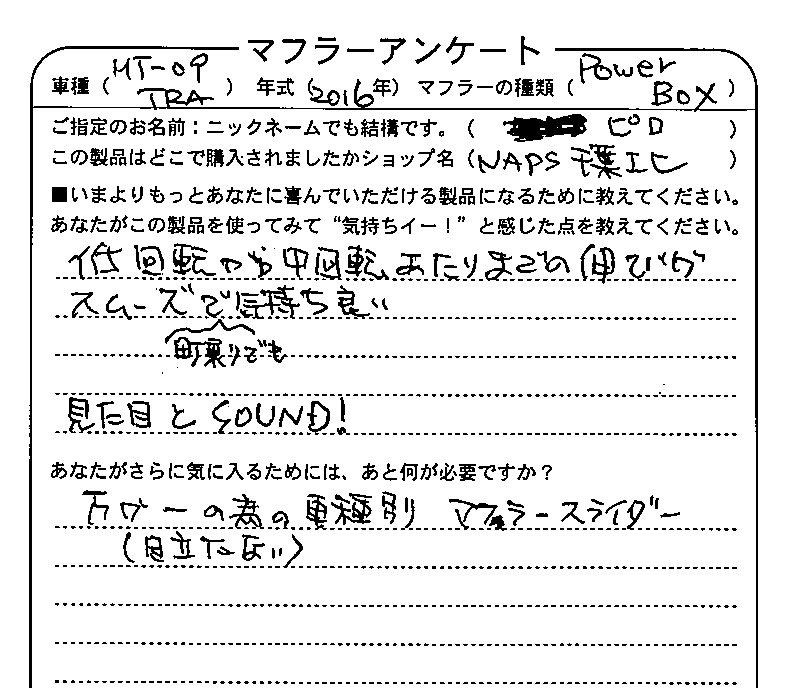 マフラーアンケート
車種（MT-09 TRA）年式（2016年）マフラーの種類（Power BOX）
ご指定のお名前：ニックネームでも結構です。（ピロ）
この製品はどこで購入されましたかショップ名（NAPS 千葉）
■いまよりもっとあなたに喜んでいただける製品になるために教えてください。
あなたがこの製品を使ってみて“気持ちイー！”と感じた点を教えてください。
低回転から中回転あたりまでの伸びが
スムーズで気持ち良い
町乗りでも
見た目とSOUND!
あなたがさらに気に入るためには、あと何が必要ですか？
万が一の為の車種別 マフラースライダー
（目立たない）